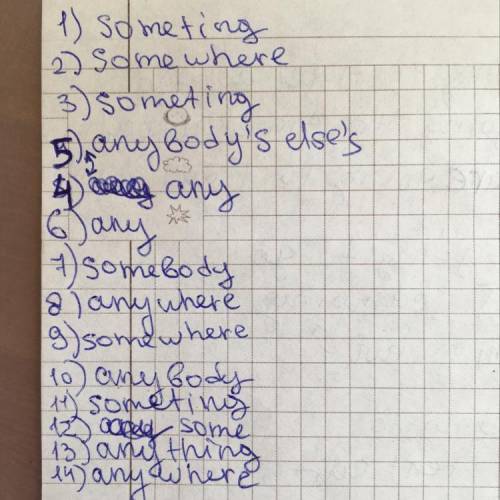 1) someting
2) somewhere
3) someting
5) anybody's else's
4) any
6) any
7) somebody
8) anywhere
9) somewhere
10) anybody
11) someting
12) some
13) anything
14) anywhere